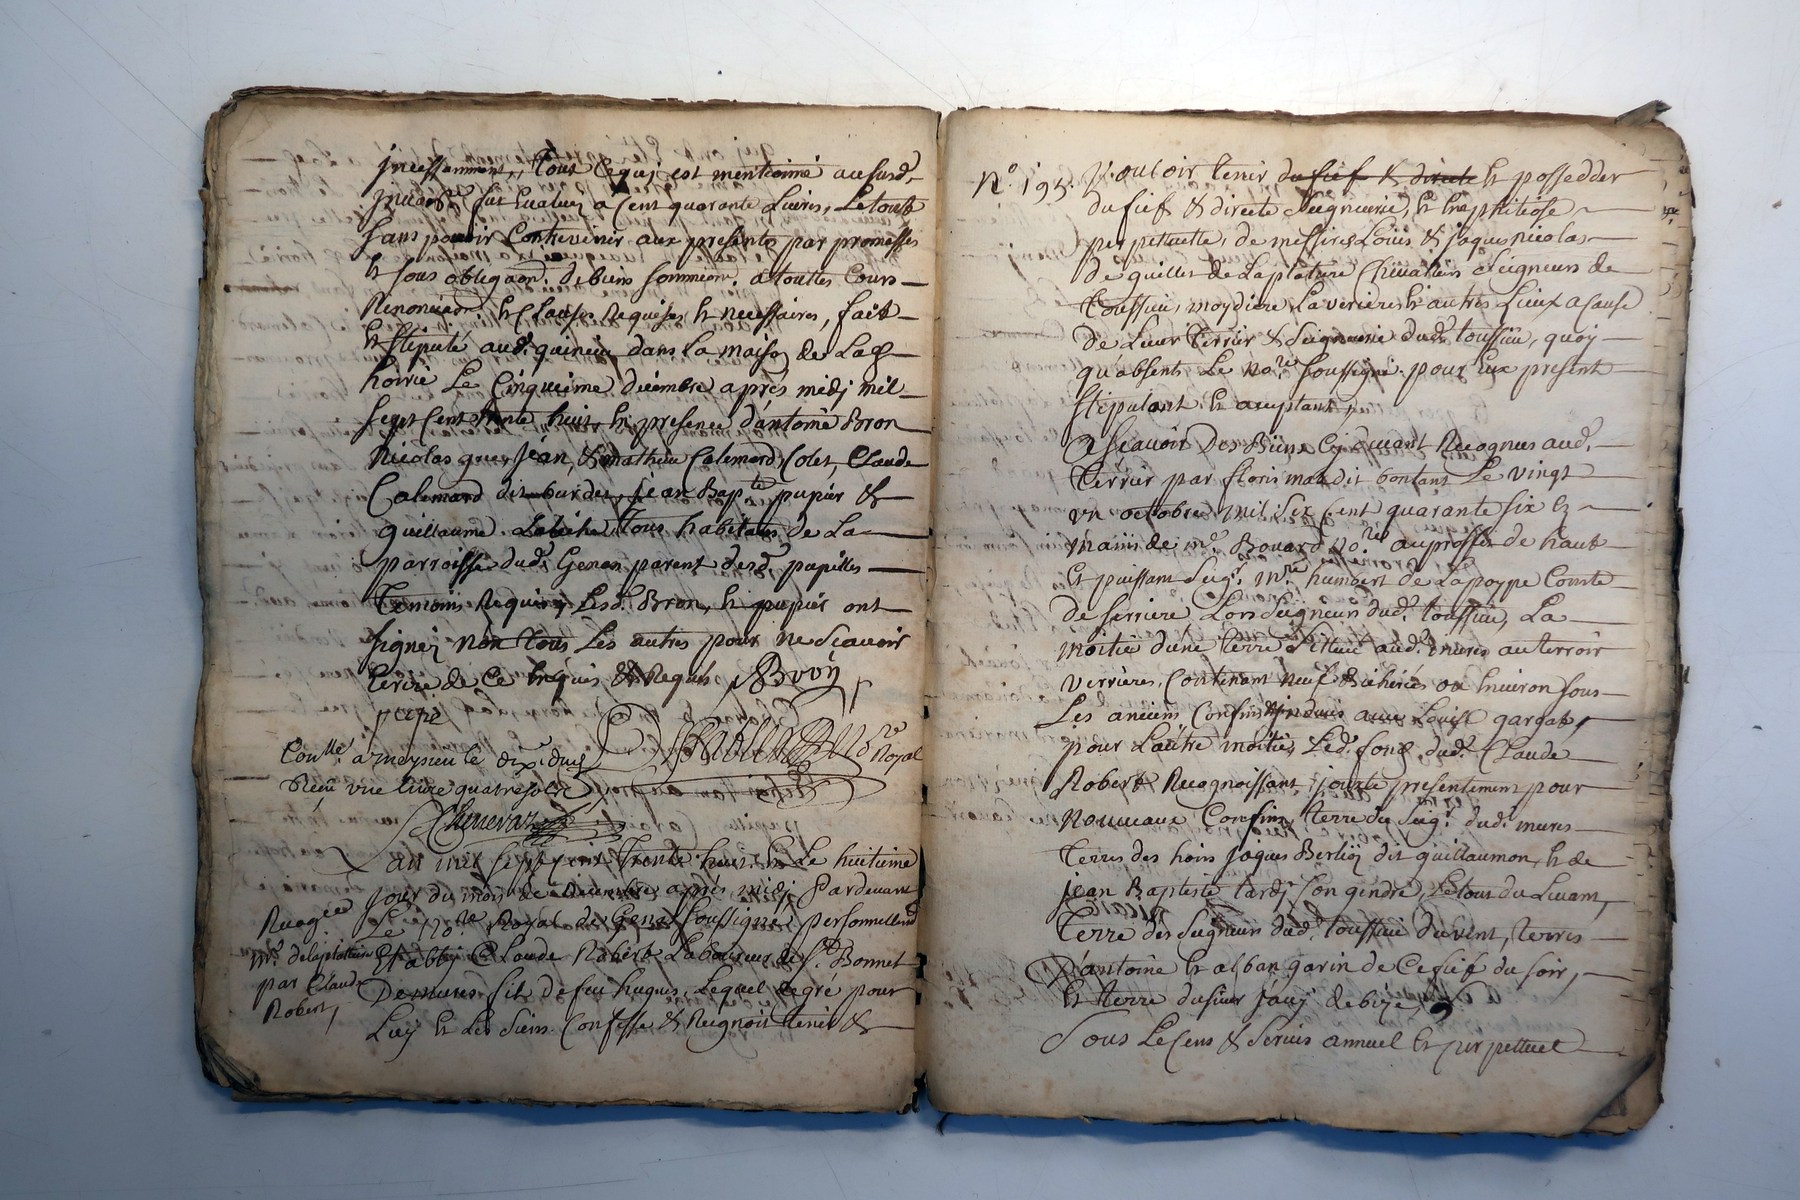 jncessamment, Tout Ce quj est mentionné au susd.
jnvant.re fut Evalué a Cent quarante Livres, Le tout
sans pouvoir Contrevenir aux presentes par promesses
Et sous obligaon. de biens soummion. a touttes Cours
Renonciaon. Et Clauses Requises Et necessaires, fait
Et stipulé aud. dans La maison de La
Le Cinquieme décembre après midj mil
sept Cent trente huit, En presence d'antoine Bron
Nicolas Jean, & mathieu Calemard, Claude
Calemard dit burdet, jean Bap.te pupier &
guillaume Tous habitans de La
parroisse dud. Genas parent desd. pupilles
Temoins Requis, Lesd. Bron, Et pupier ont
signez non tous Les autres pour ne Scavoir
Ecrire de Ce Enquis & Requis. ABron
pupié
N.re Royal
Con.llé a meysieu le dix. duis
Receu vne livre quatre sols
Chenevaz
L'an mil sept cent Trente huit Et Le huitieme
jour du mois de decembre après midj Pardevant
Le No.re Royal de Genas soussigné personnellem.t
Etably Claude Robert Laboureur de S.t Bonnet
De mures fils de feu hugues, Lequel de gré pour
Luy Et Les Siens Confesse & Recognoit tenir &
m.r delaplatiere
par Claude
Robert,
N.o 195. Vouloir tenir du fief & directe Et possedder
du fief & directe Seigneurie, Et Enephitiose
perpettuelle, de messires Loüis & jaques nicolas
de quillet de Laplatiere Chevaliers Seigneurs de
Toussieu, moydiere Laveriere & autres Lieux a Cause
de Leur Terrier & Seigneurie dud. toussieu, quoy
qu'absents Le No.re soussigné pour Eux present
stipulant Et acceptant,
Ascavoir Des Biens Cy devant Recognus aud.
Terrier par floris mandit bontant Le vingt
vn octobre mil six Cent quarante six Ez
mains de m.e Bouard No.re au proffit de haut
Et puissant Seig.r m.re humbert de Lapoype Comte
de serriere Lors Seigneur dud. toussieu, La
moitié d'une terre Sittuée aud. mures au terroir
verrieres, Contenant neuf Bicherées ou Environ sous
Les anciens Confins jndivis avec Louise gargat,
pour L'autre moitié, Led. fond dud. Claude
Robert Recognoissant, jouxte presentement pour
nouveaux Confins, terre du Seig.r dud. mures
Terres des hoirs jaques Berlioz dit guillaumon, Et de
jean Baptiste tardj son gendre, Le tout du Levant,
Terre des Seigneurs dud. toussieu du vent, terres
D'antoine Et alban garin de Ce fief du soir,
Et terre du sieur de bize,
Sous Le Cens & Servis annuel Et perpettuel